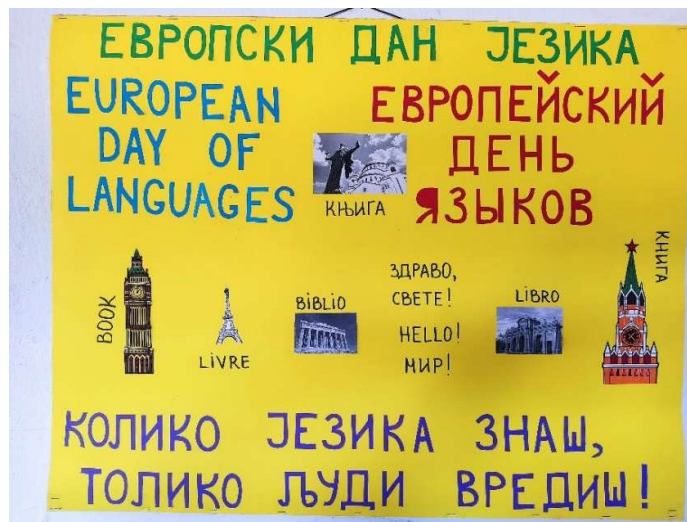 ЕВРОПСКИ ДАН ЈЕЗИКА
EUROPEAN
DAY OF
LANGUAGES
ЕВРОПЕЙСКИЙ
ДЕНЬ
ЯЗЫКОВ
КЊИГА
BOOK
LIVRE
BIBLIO
ЗДРАВО,
СВЕТЕ!
HELLO!
МИР!
LIBRO
КНИГА
КОЛИКО ЈЕЗИКА ЗНАШ,
ТОЛИКО ЉУДИ ВРЕДИШ!